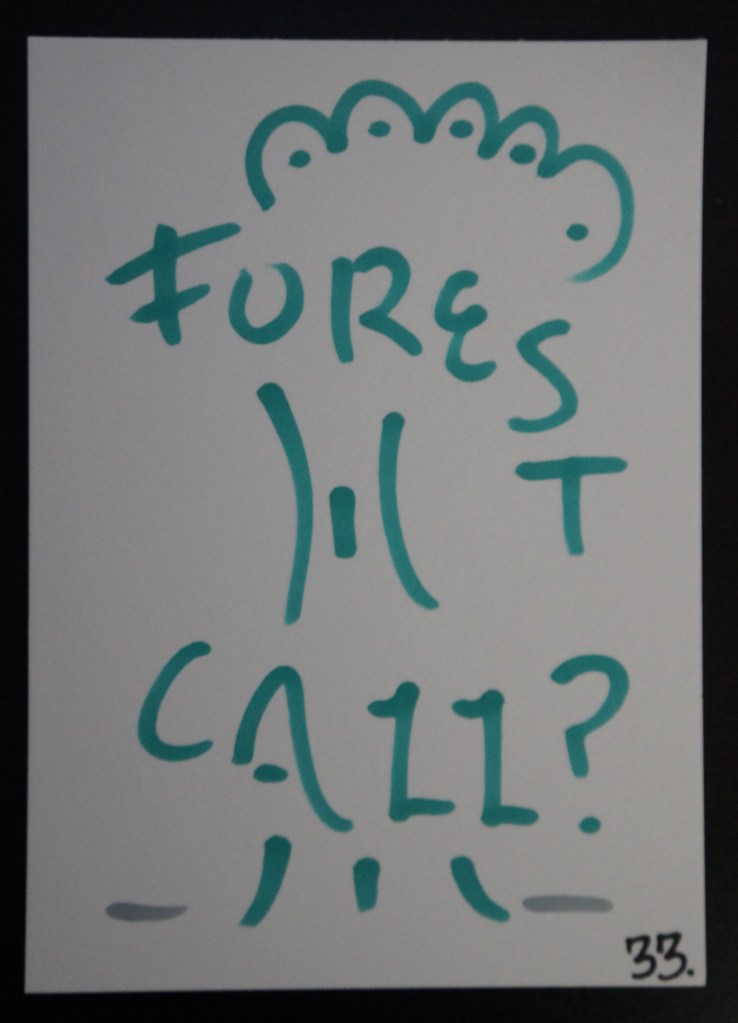 FOREST
CALL?
33.